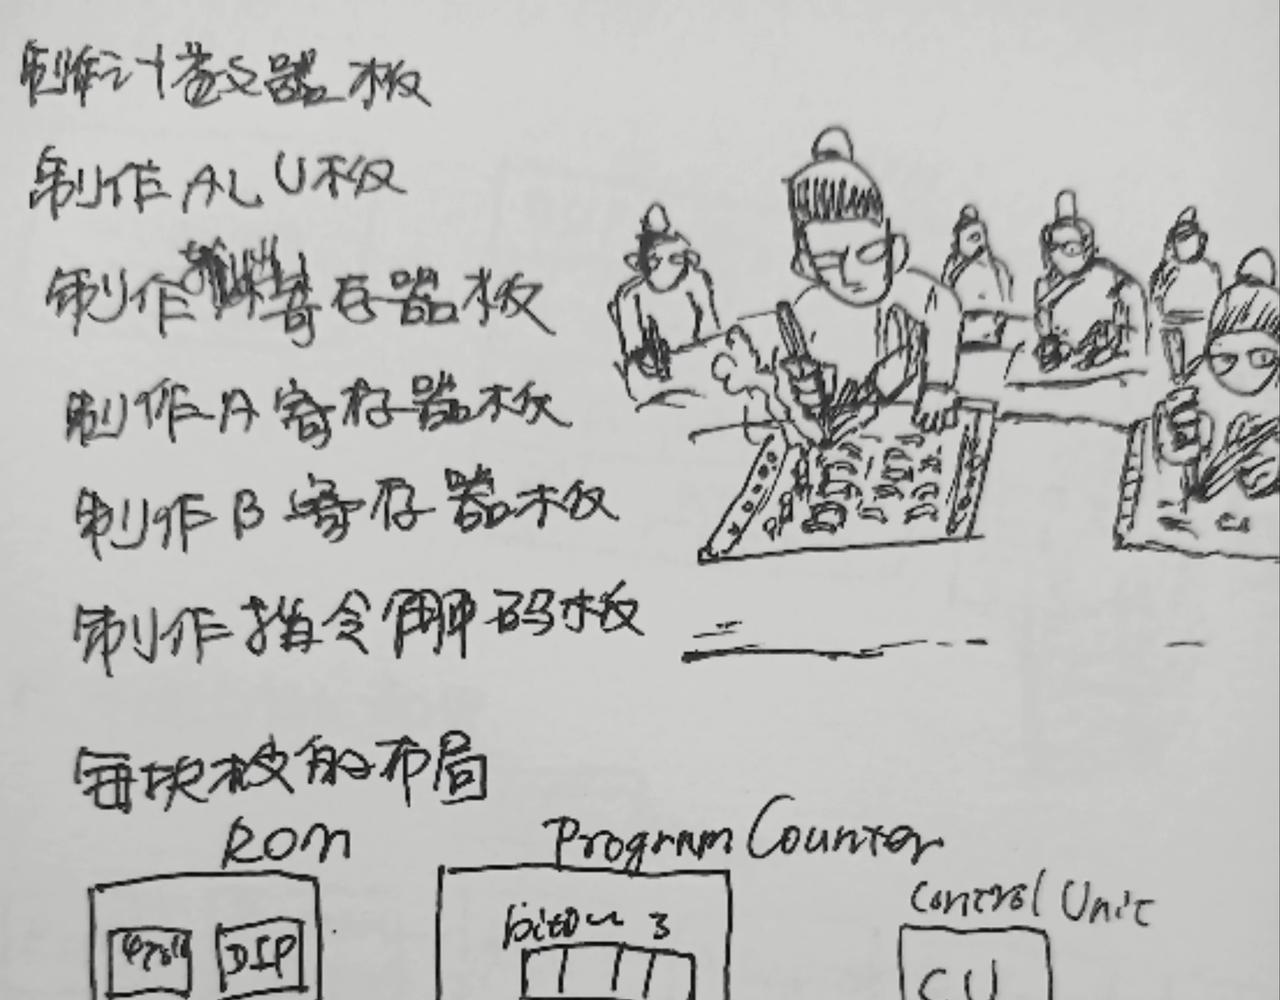 制作计数器板
制作ALU板
制作寄存器板
制作A寄存器板
制作B寄存器板
制作指令解码板
每块板的布局
ROM
Program Counter
Control Unit
DIP
3
CU